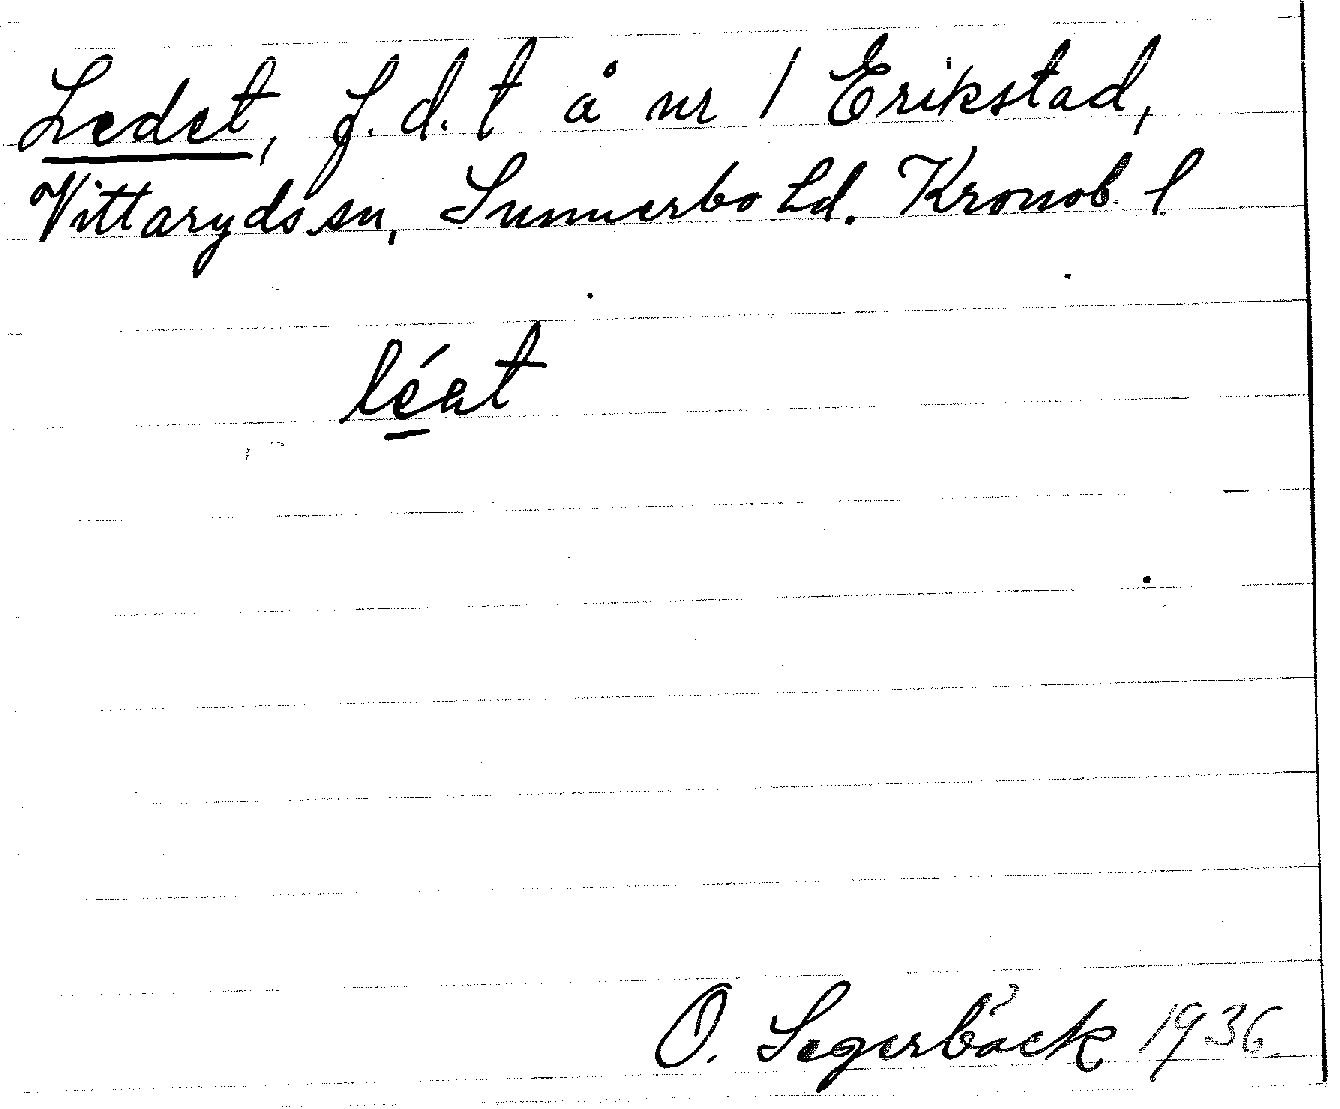 Ledet, f.d. t å nr 1 Erikstad,
Vittaryds sn, Sunnerbo hd. Kronob. l
léat
O. Segerbäck 1936.